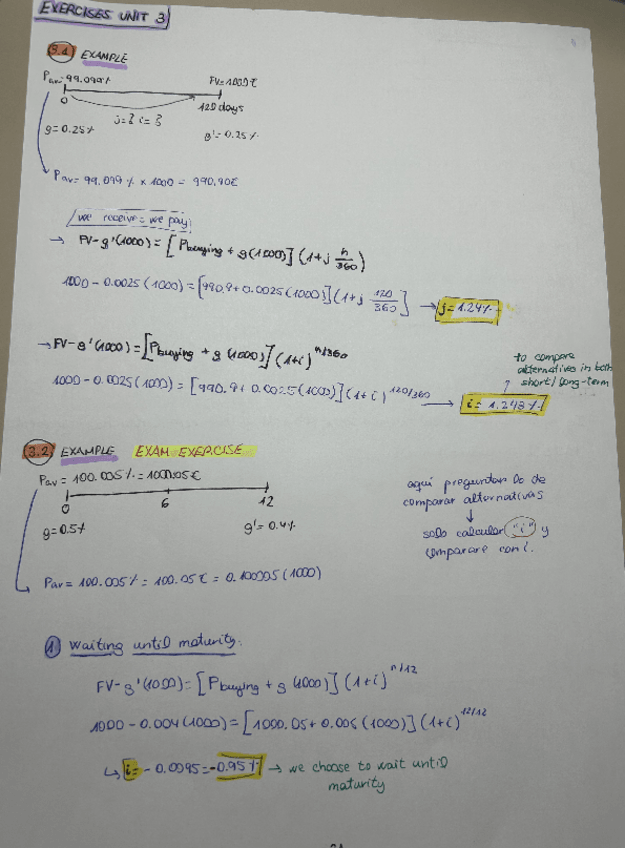 EXERCISES UNIT 3
3.1 EXAMPLE
Pav=99.099% FV=1000€
0 120 days
j=? i=?
g=0.25% g'=0.25%
Pav=99.099% x 1000 = 990,90€
we receive = we pay
→ FV-g'(1000)=[Pbuying + g(1000)](1+j n/360)
1000-0.0025(1000)=[990,9+0.0025(1000)](1+j 120/360] → j=1.24%
→FV-g'(1000)=[Pbuying + g(1000)](1+i)^n/360
to compare
alternatives in both
short/long-term
1000-0.0025(1000)=[990,9+0.0025(1000)](1+i)^120/360 → i=1.243%
3.2 EXAMPLE EXAM EXERCISE
Pav=100.005%=1000.05€
0 6 12
g=0.5% g'=0.4%
aquí preguntan lo de
comparar alternativas
↓
solo calcular "i" y
comparare con i.
Pav=100.005%=100.05€=0.100005(1000)
1 Waiting until maturity:
FV-g'(1000)=[Pbuying + g(1000)](1+i)^n/12
1000-0.004(1000)=[1000.05+0.005(1000)](1+i)^12/12
↳ i=-0.0095=-0.95% → we choose to wait until
maturity